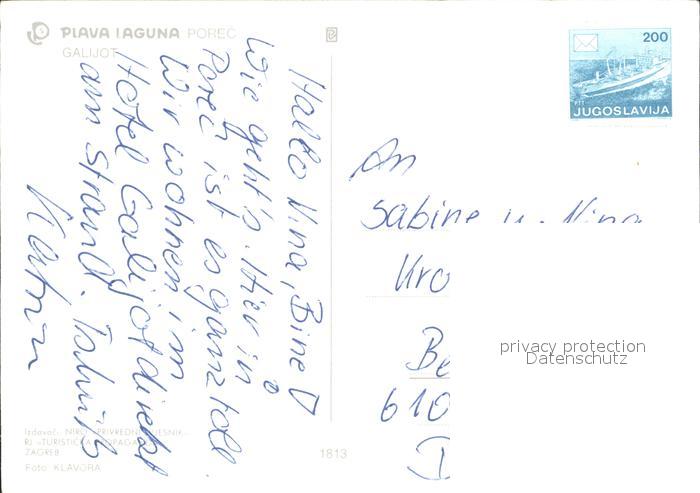 PLAVA LAGUNA POREČ
GALIJOT
200
PTT
JUGOSLAVIJA
Hallo Nina, Bine
Wie geht's. Hier in
Poreč ist es ganz toll.
Wir wohnen im
Hotel Galijot direkt
am Strand. Tschüß
Katrin
An
Sabine u. Nina
Kro
Be
610
D
privacy protection
Datenschutz
Izdavač: NIRO »PRIVREDNI VJESNIK«
RJ »TURISTIČKA PROPAGANDA«
ZAGREB
Foto: KLAVORA
1813